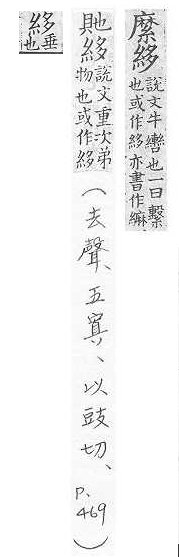 縻䋾說文牛轡也一曰繫也或作䋾亦書作
貤䋾說文重次弟物也或作䋾(去聲、五寘、以豉切、P.469)
䋾垂也